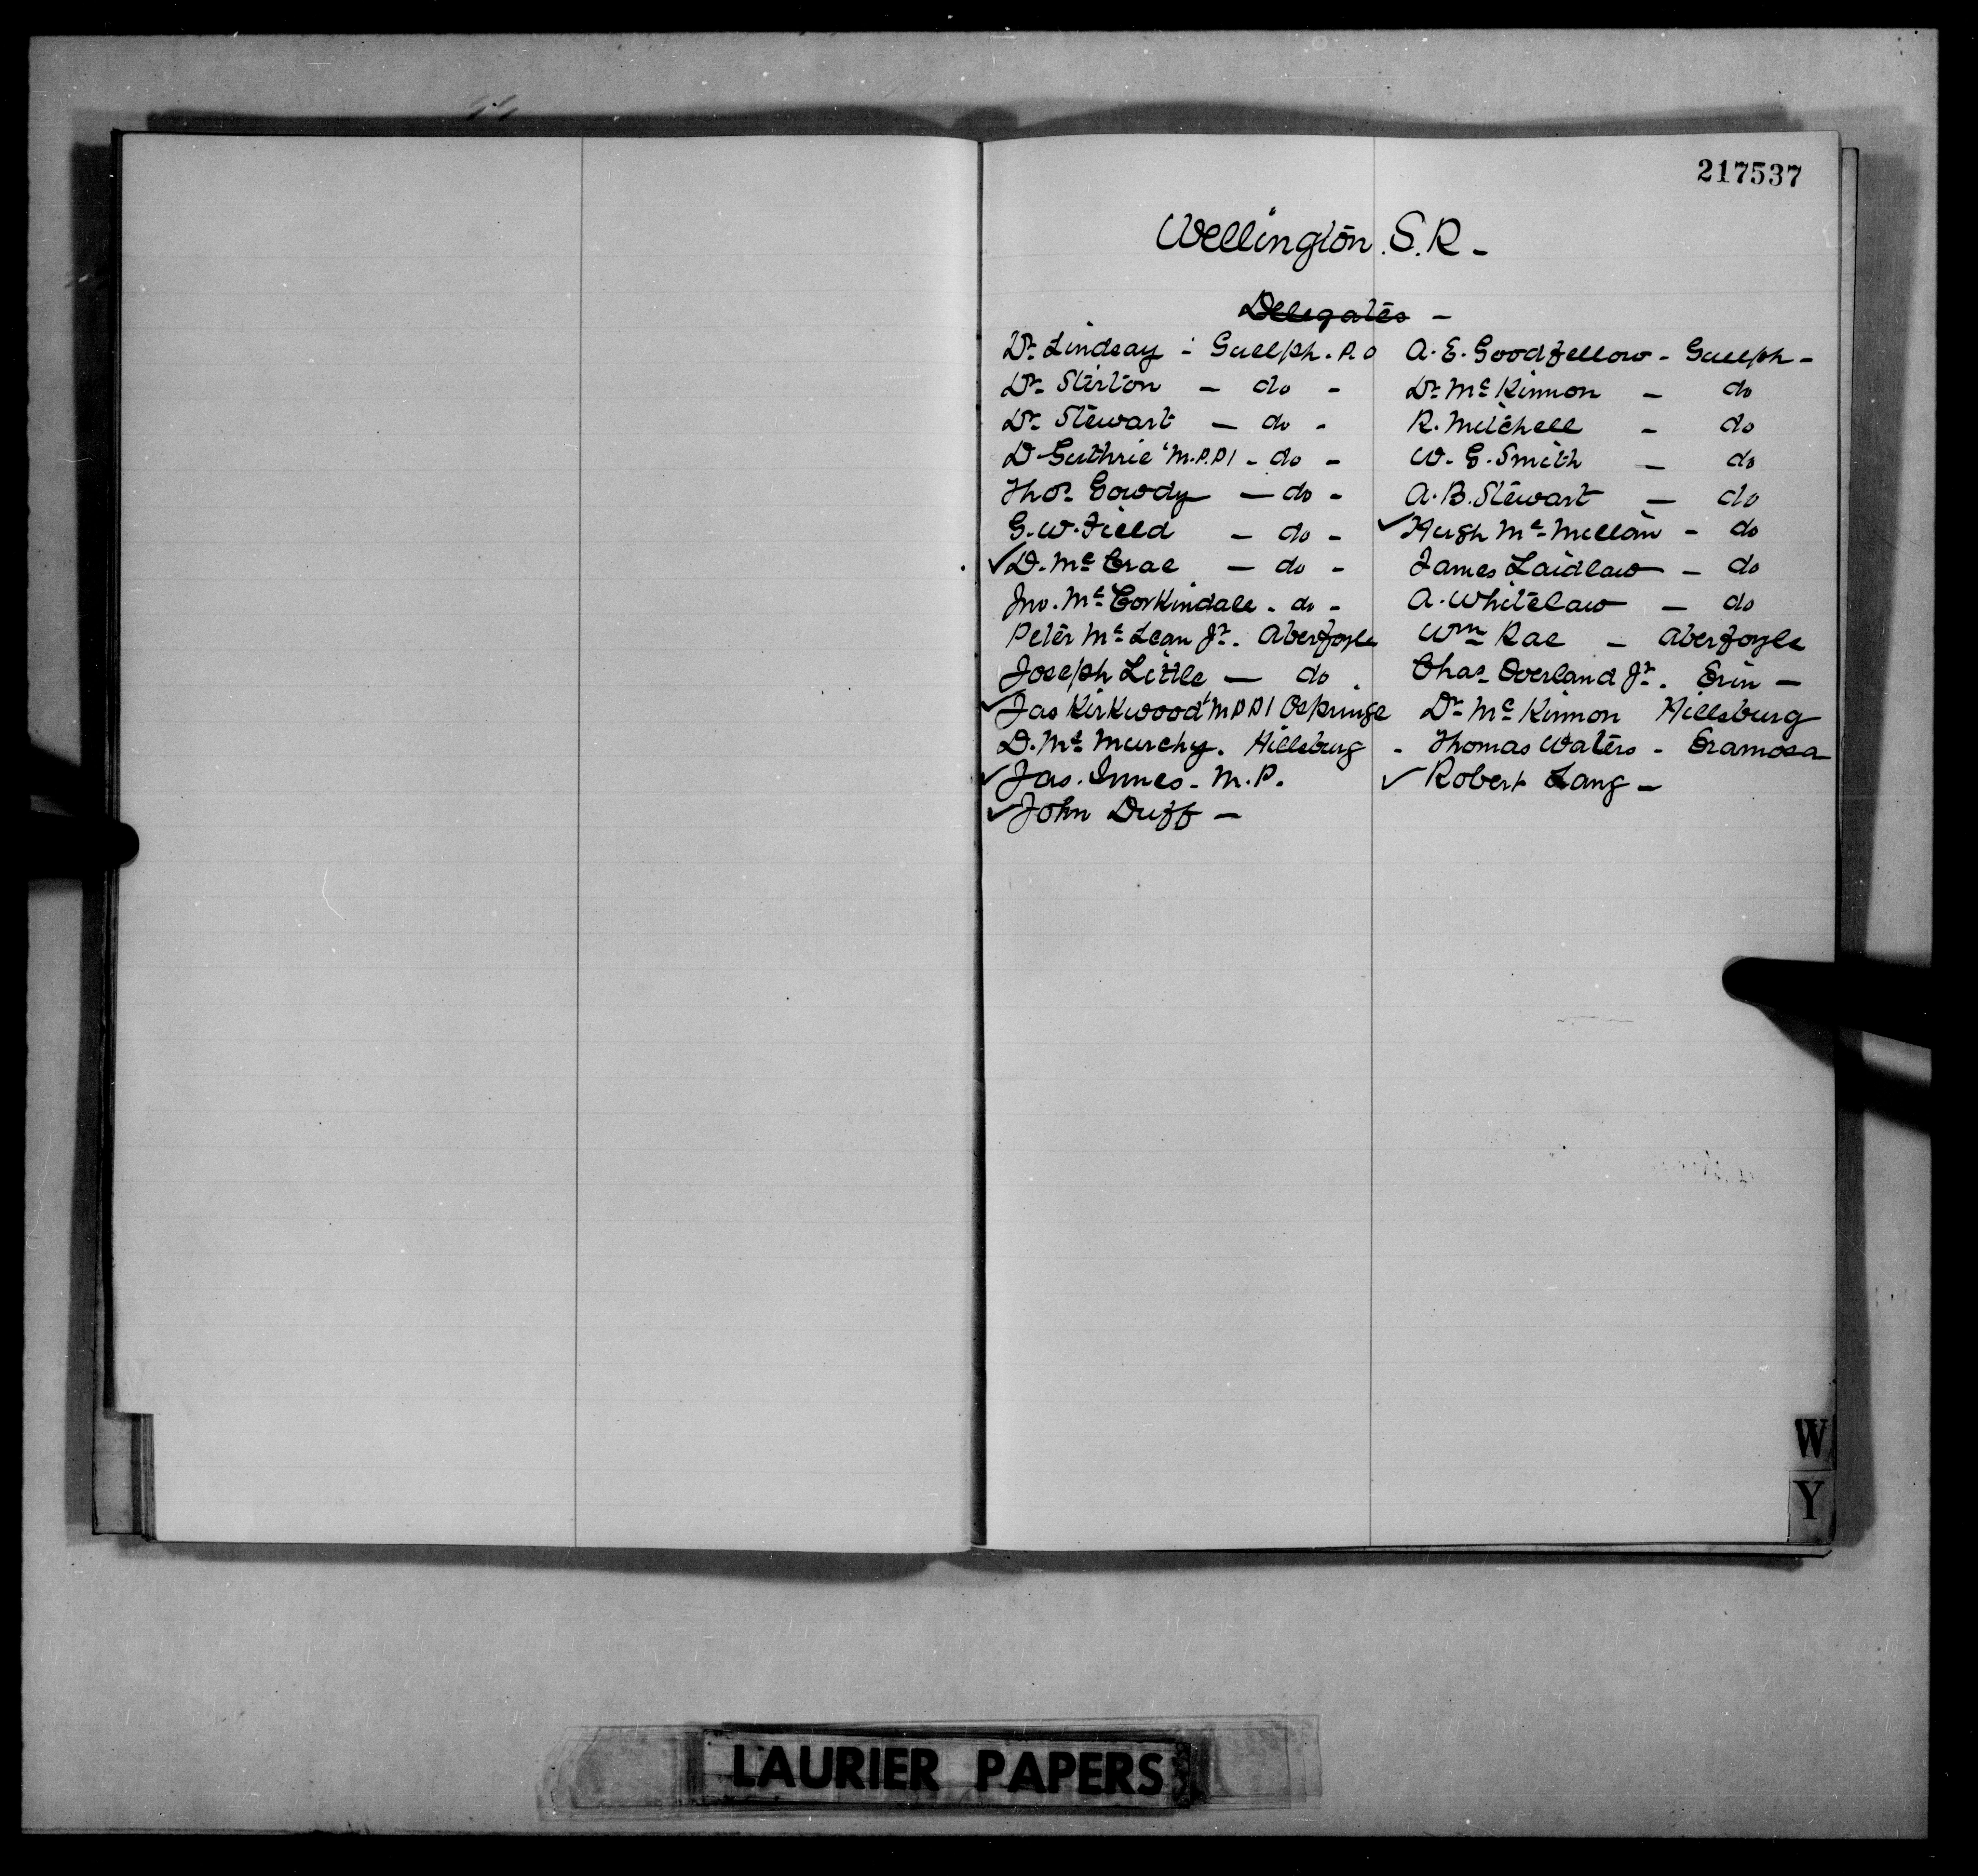 217537
Wellington. S. R -
Delegates -
Dr Lindsay - Guelph. P.O
Dr Stirton - do -
Dr Stewart - do -
D Guthrie "M.P.P" - do -
Thos Gowdy - do -
G. W. Field - do -
✓ D. Mc Crae - do -
Jno. Mc Corkindale - do -
Peter Mc Lean Jr. Aberfoyle
Joseph Little - do .
✓ Jas Kirkwood "MPP" Ospringe
D. Mc Murchy. Hillsburg
✓ Jas. Innes - M.P.
✓ John Duff -
A. E. Goodfellow - Guelph -
Dr Mc Kinnon - do
R. Mitchell - do
W. E. Smith - do
A. B. Stewart - do
✓ Hugh Mc Millan - do
James Laidlaw - do
A. Whitelaw - do
Wm Rae - Aberfoyle
Chas Overland Jr. Erin -
Dr Mc Kinnon Hillsburg
- Thomas Waters - Eramosa
✓ Robert Lang -
W
Y
LAURIER PAPERS